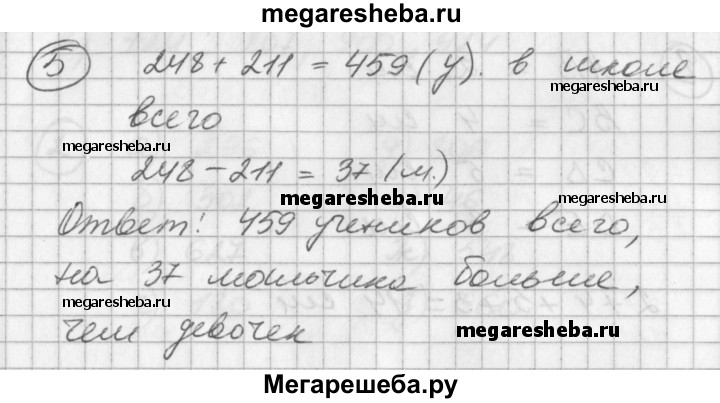 megaresheba.ru
5 248 + 211 = 459 (у). в школе
всего
megaresheba.ru
megaresheba.ru
248 - 211 = 37 (м.)
megaresheba.ru
Ответ: 459 учеников всего,
на 37 мальчика больше,
megaresheba.ru
чем девочек
megaresheba.ru
Мегарешеба.ру